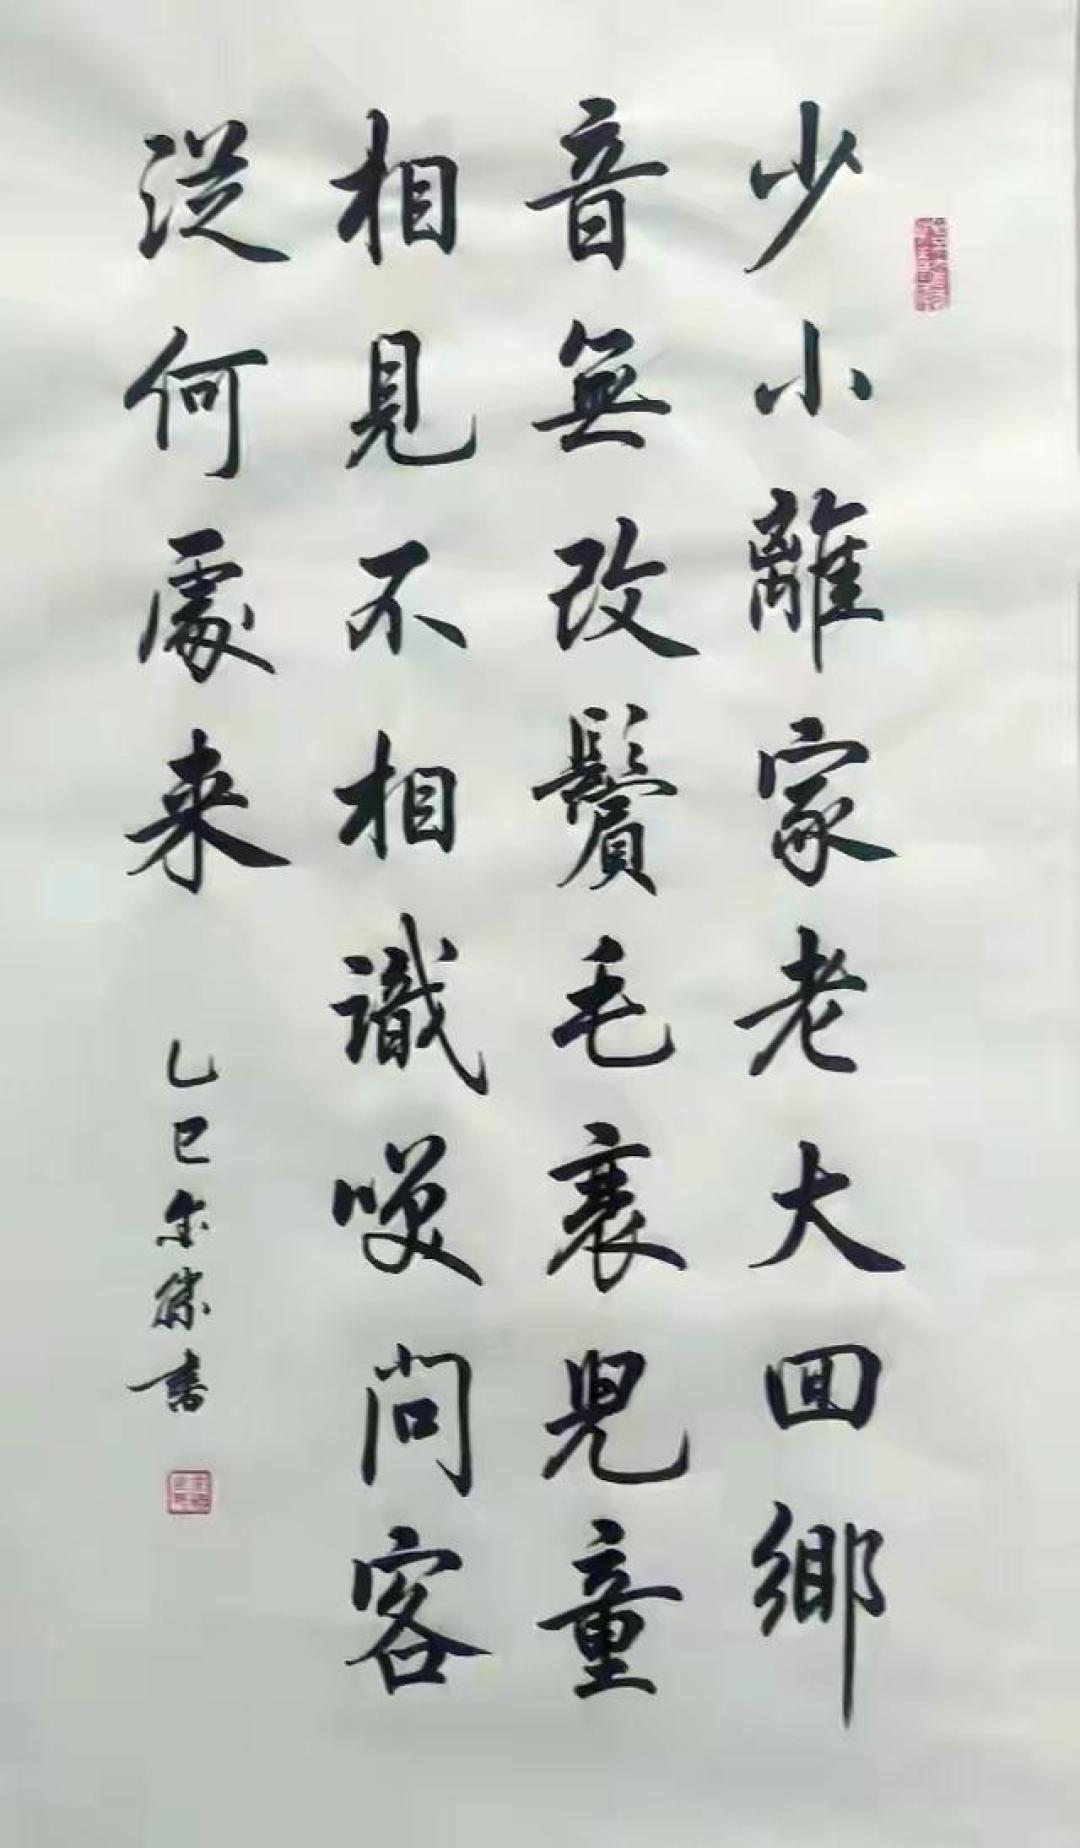 少小離家老大回鄉
音無改鬢毛衰兒童
相見不相識咲问客
從何處来
乙巳 書